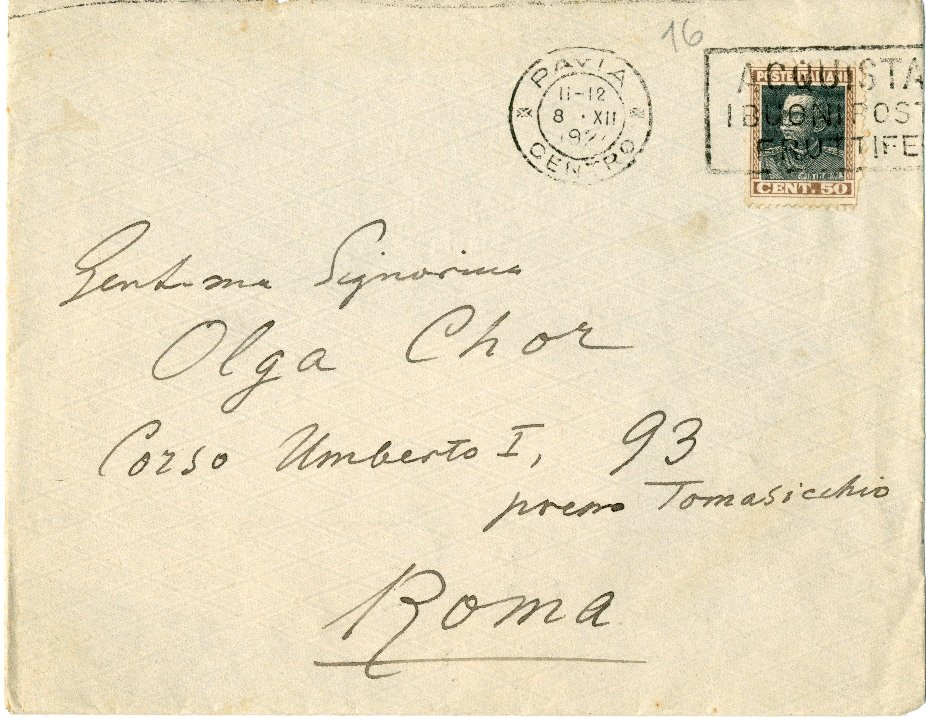 16
PAVIA
11-12
8 · XII
192
CENTRO
ACQUISTA
I BUONI POST
FRUTTIFE
POSTE ITALIANE
CENT. 50
Gent.ma Signorina
Olga Chor
Corso Umberto I, 93
presso Tomasicchio
Roma